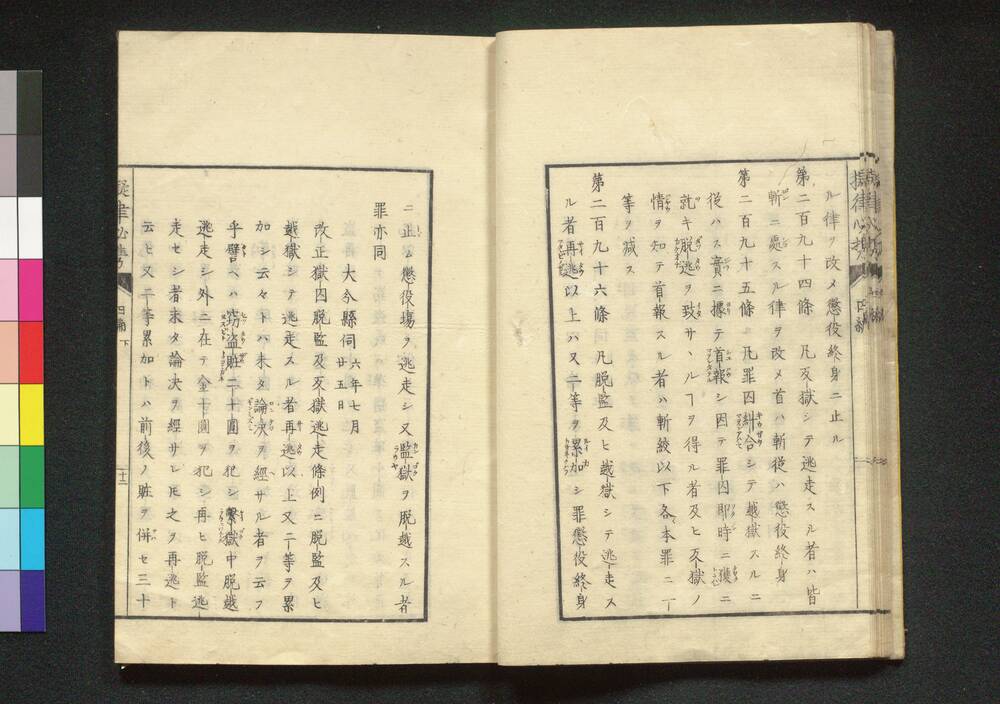 ル律ヲ改メ懲役終身ニ止ル
第二百九十四條 凡反獄シテ逃走スル者ハ皆
斬ニ處スル律ヲ改メ首ハ斬從ハ懲役終身
第二百九十五條 凡罪囚糾合シテ越獄スルニ
從ハス實ニ據テ首報シ因テ罪囚即時ニ獲ニ
就キ脱逃ヲ致サヽルヿヲ得ル者及ヒ反獄ノ
情ヲ知テ首報スル者ハ斬絞以下各本罪ニ一
等ヲ減ス
第二百九十六條 凡脱監及ヒ越獄シテ逃走ス
ル者再逃以上ハ又二等ヲ累加シ罪懲役終身
ニ止ム懲役塲ヲ逃走シ又監獄ヲ脱越スル者
罪亦同
大分縣伺 六年七月廿五日
改正獄囚脱監及反獄逃走條例ニ脱監及ヒ
越獄シテ逃走スル者再逃以上又二等ヲ累
加シ云々トハ未タ論決ヲ經サル者ヲ云フ
乎譬ヘハ窃盗賍二十圓ヲ犯シ繫獄中脱越
逃走シ外ニ在テ金十圓ヲ犯シ再ヒ脱監逃
走セシ者未タ論決ヲ經サレ𪜈之ヲ再逃ト
云ヒ又二等累加トハ前後ノ賍ヲ併セ三十
四編 下
十二